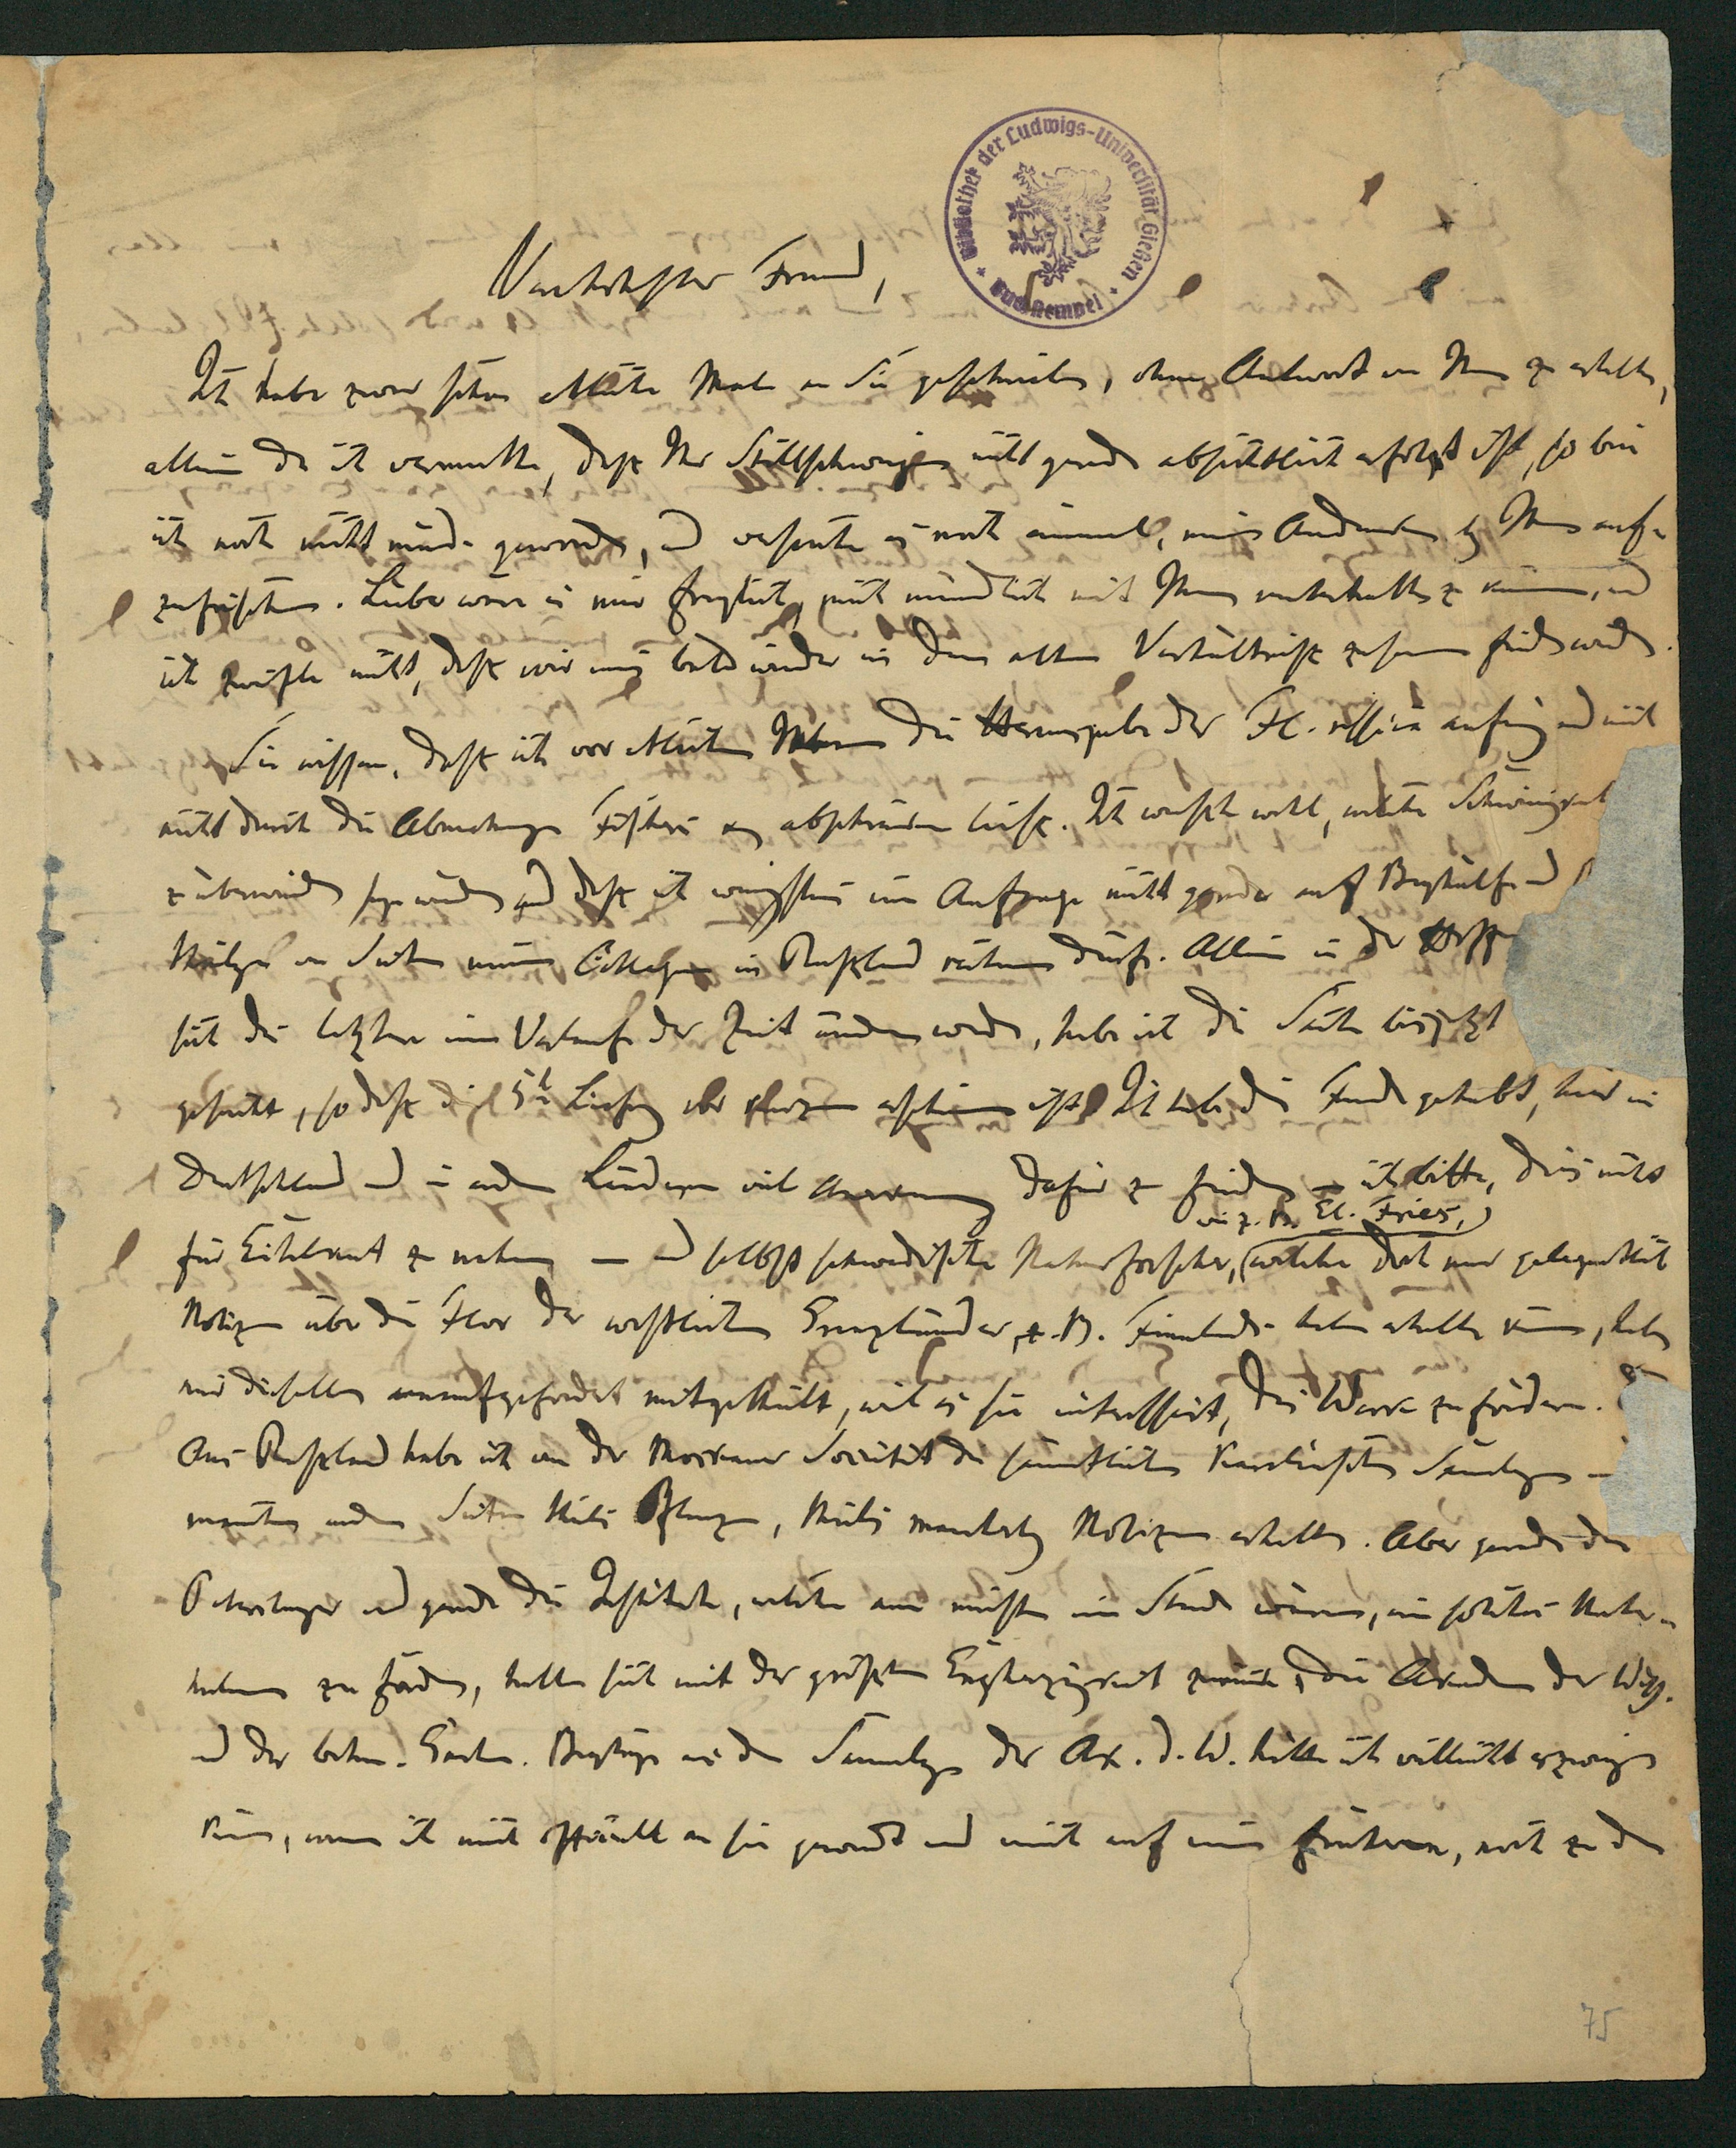 Bibliothek der Ludwigs-Universität Gießen
Buchstempel
Verehrtester Freund,
Ich habe zwar schon etliche Male an Sie geschrieben, ohne Antwort von Ihnen zu erhalten,
allein da ich vermuthe, daß Ihr Stillschweigen nicht gerade absichtlich erfolgt ist, so bin
ich noch nicht müde geworden, und versuche es noch einmal, mein Andenken bey Ihnen auf-
zufrischen. Lieber wäre es mir freylich, mich mündlich mit Ihnen unterhalten zu können, und
ich zweifle nicht, daß wir uns bald wieder in dem alten Verhältniß zusammen finden werden.
Sie wissen, daß ich vor etlichen Jahren die Herausgabe der Fl. rossica anfing und mich
nicht durch die Abmahnungen Fischers abschrecken ließ. Ich wußte wohl, welche Schwierigkeit
zu überwinden seyn würden und daß ich wenigstens im Anfange nicht gerade auf Beyhülfe und
von Seiten meiner Collegen in Rußland rechnen dürfe. Allein in der Hoff
sich die letztere im Verlauf der Zeit ändern werde, habe ich die Sache bis jetzt
gefördert, so daß die 5te Lieferung vor Kurzem erschienen ist. Ich habe die Freude gehabt, hier in
Deutschland und in andern Ländern viel Anerkennung dafür zu finden – ich bitte, dies nicht
wie z. B. El. Fries,
für Eitelkeit zu nehmen — und selbst schwedische Naturforscher, welche doch nur gelegentlich
Notizen über die Flor der westlichen Grenzländer, z. B. Finnlands haben erhalten können, haben
mir dieselben unaufgefordert mitgetheilt, weil es sie interessirt, das Werk zu fördern.
Aus Rußland habe ich von der Moskauer Societät die sämmtlichen Karelinschen Sammlungen
manchen andern Seiten theils Pflanzen, theils mancherley Notizen erhalten. Aber gerade die
Petersburger und gerade die Institute, welche am meisten im Stande wären, ein solches Unter-
nehmen zu fördern, halten sich mit der größten Engherzigkeit zurück, die Akademie der Wiss.
und der botan. Garten. Beyträge aus den Sammlungen der Ak. d. W. hätte ich vielleicht erzwingen
können, wenn ich mich officiell an sie gewandt und mich auf mein früheres, noch zu den
75